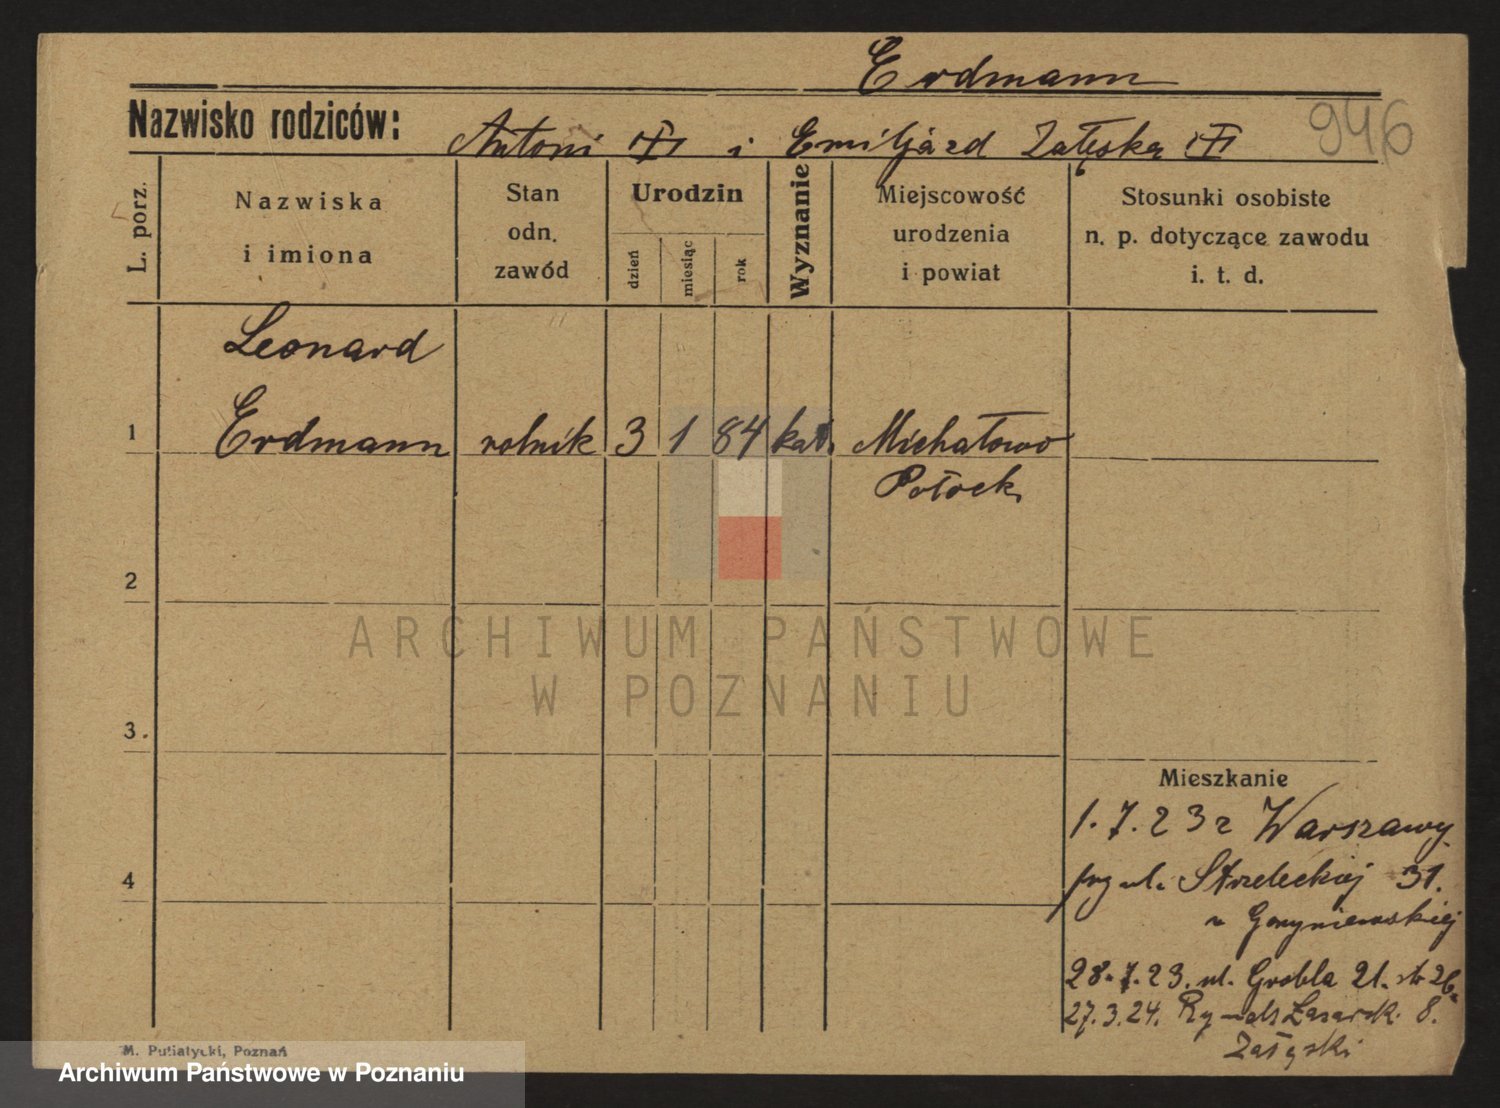 Erdmann
Nazwisko rodziców: Antoni i Emilja zd Załęska
946
L. porz.
Nazwiska i imiona
Stan odn. zawód
Urodzin
dzień
miesiąc
rok
Wyznanie
Miejscowość urodzenia i powiat
Stosunki osobiste n. p. dotyczące zawodu i. t. d.
Leonard
1 Erdmann rolnik 3 1 84 kat. Michałowo
Połock
2
3.
4
Mieszkanie
1.7.23 z Warszawy
przy ul. Strzeleckiej 31.
u
28.7.23. ul. Grobla 21.
27.3.24. Rynek Łazarsk. 8.
Załęski
ARCHIWUM PAŃSTWOWE
W POZNANIU
M. Putiatycki, Poznań
Archiwum Państwowe w Poznaniu